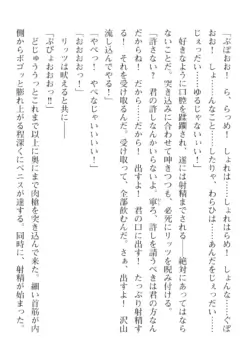 「ぶぼおお！　ら、らっめ！　しょれはらめ！　しょ……じぇっ……ぐぼ
おお！　しょ……んなこと……したりゃ、わらひは……あんだをじぇっだい……
じぇっだい……ゆるじゃなびい！」
　好きなように口腔を蹂躙され、遂には射精までされる――絶対にあってはな
らないことだ。突き込みに合わせて呻きつつも、必死にリッツを睨み付ける。
「許さない？　君の許しなんかいらないよ。寧ろ、許しを請うべきは君の方なん
だからね！　だから――出すよ！　君の口に出す！　たっぷり射精す
る！　それを受け取るんだ。受け取って、全部飲むんだ。さぁ、出すよ！　沢山
流し込んでやる！」
「やべっ！　やべなじゃいいいい！」
　リッツは吠えると共に――
「ぶびょおおおおっ!!」
　どじゅううっとこれまで以上に奥にまで肉槍を突き込んで来た。細い首筋が内
側からボゴッと膨れ上がる程深くにペニスが達する。同時に、射精が始まった。